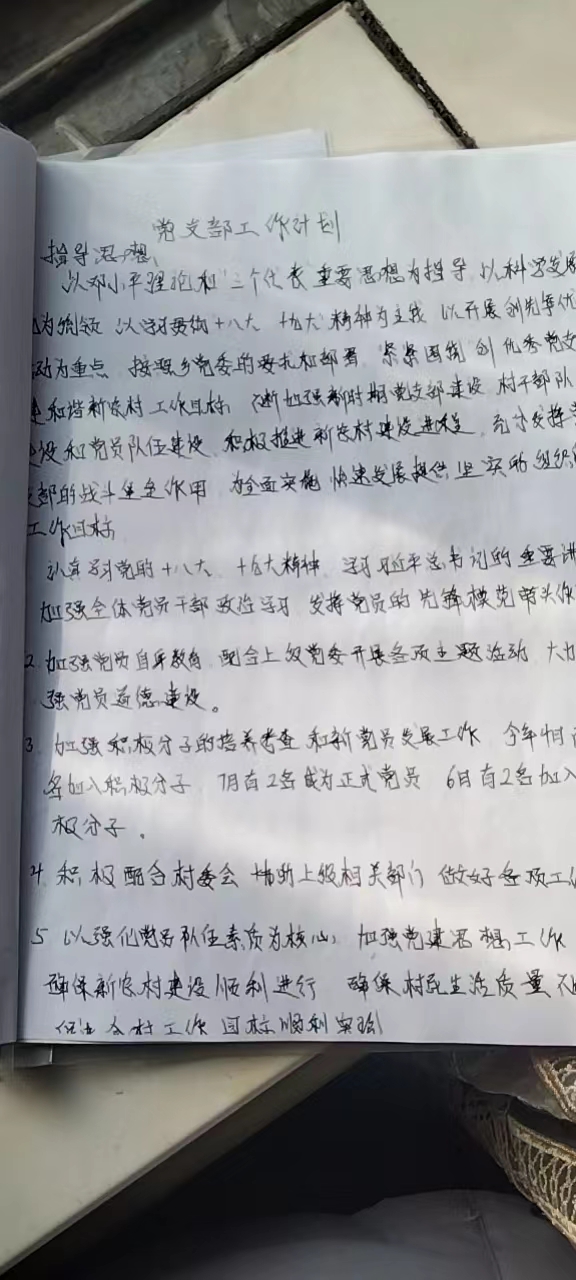 党支部工作计划
指导思想
以邓小平理论和"三个代表"重要思想为指导 以科学发展
为统领 以学习贯彻十八大 十九大精神为主线 以开展创先争优
动为重点 按照乡党委的要求和部署 紧紧围绕 创优秀党支
建和谐新农村工作目标 不断加强新时期党支部建设 村干部队
建设和党员队伍建设 积极推进新农村建设进程 充分发挥
支部的战斗堡垒作用 为全面实施 快速发展提供坚实的组织
工作目标
认真学习党的十八大 十九大精神 学习习近平总书记的重要讲
加强全体党员干部政治学习 发挥党员的先锋模范带头作
2 加强党员自身教育 配合上级党委开展各项主题活动 大力
强党员道德建设。
3 加强积极分子的培养考查和新党员发展工作 今年
名加入积极分子 7月有2名成为正式党员 6月有2名加入
极分子。
4 积极配合村委会 协助上级相关部门 做好各项工
5 以强化党员队伍素质为核心 加强党建思想工作
确保新农村建设顺利进行 确保村民生活质量
全村工作目标顺利实现